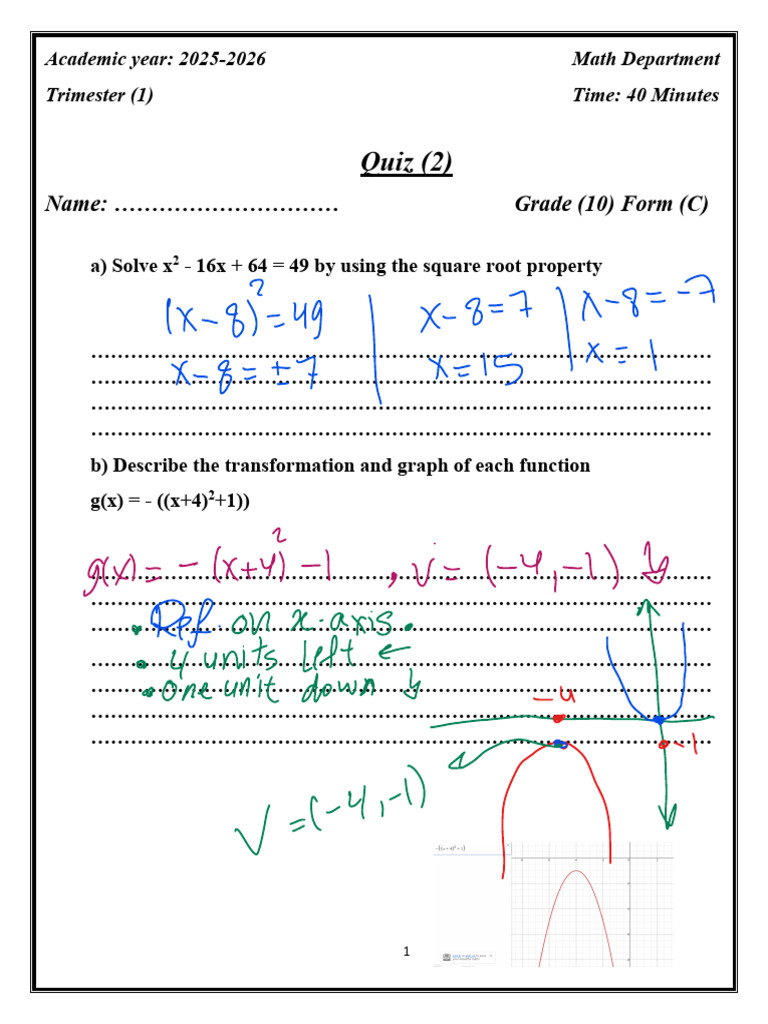 Academic year: 2025-2026 Math Department
Trimester (1) Time: 40 Minutes
Quiz (2)
Name: ………………………… Grade (10) Form (C)
a) Solve x² - 16x + 64 = 49 by using the square root property
(x-8)²=49 x-8=7 x-8=-7
x-8=±7 x=15 x=1
b) Describe the transformation and graph of each function
g(x) = - ((x+4)²+1))
g(x)= -(x+4)²-1, V=(-4,-1)
• Ref. on x-axis.
• 4 units left ←
• one unit down
-4
-1
V=(-4,-1)
1